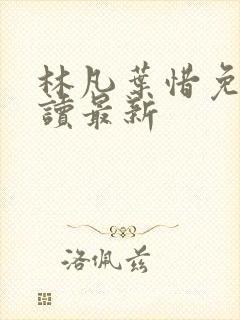 林凡葉惜免
讀最新
洛佩兹